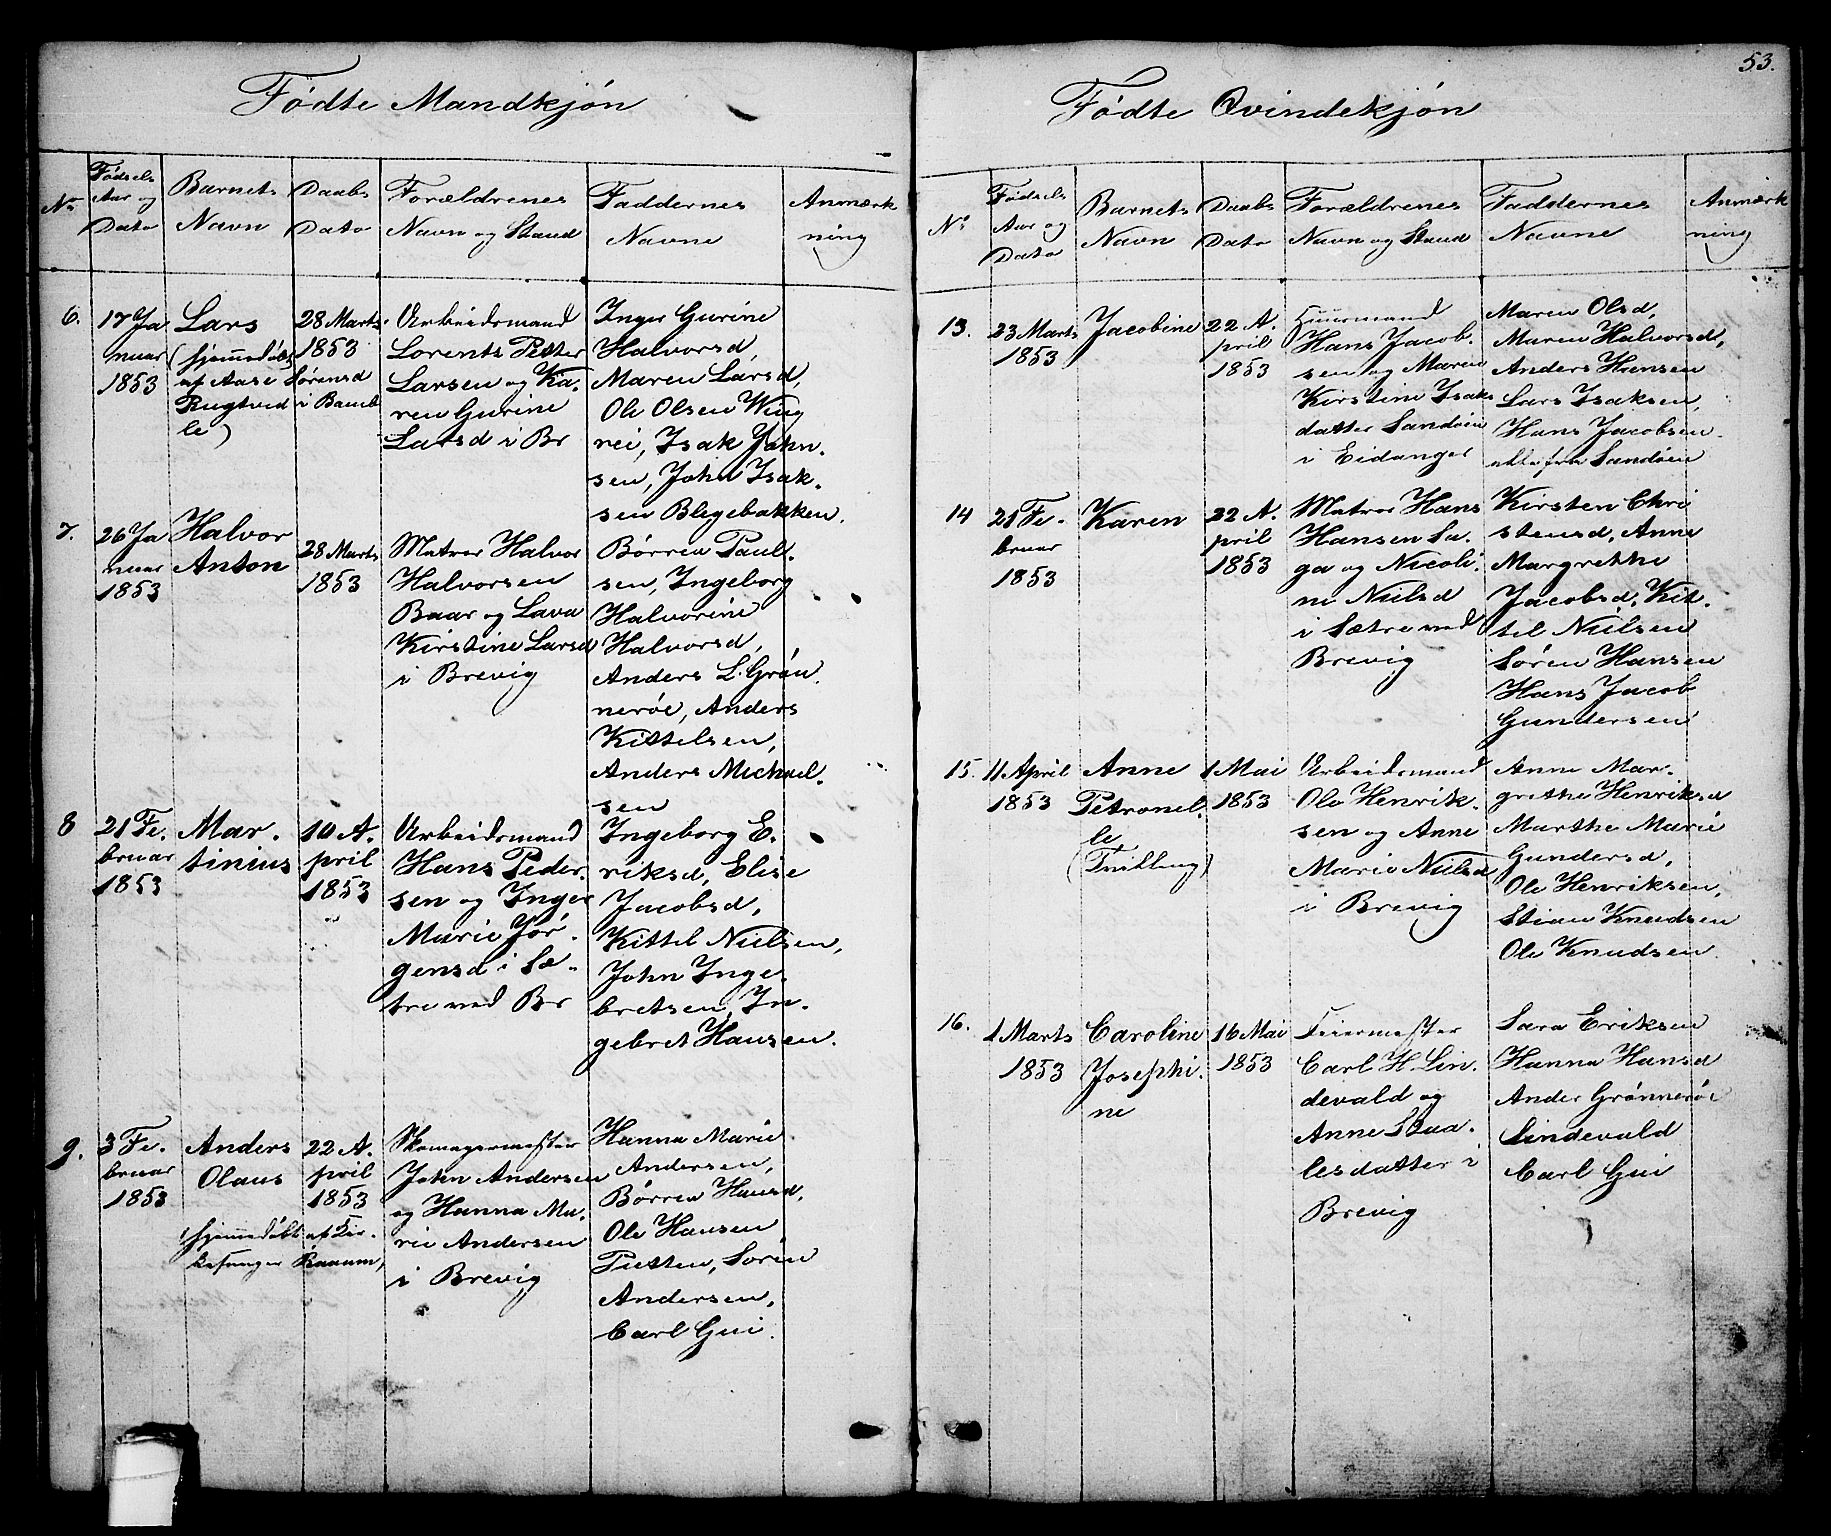 53.
Fødte Mandkjøn
No
Fødsels Aar og Dato
Barnets Navn
Daabs Dato
Forældrenes Navn og Stand
Faddernes Navne
Anmærk
ning
6.
17 Ja
nuar
1853
Lars
(hjemmedøbt
af Aase Sørensd
Rugtved
i Bamb
le)
28 Marts
1853
Arbeidsmand
Lorents Petter
Larsen og Ka.
ren Gurine
Larsd i Br
Inger Gurine
Halvorsd,
Maren Larsd,
Ole Olsen Wing
rei, Isak John.
sen, John Isak.
sen Blegebakken.
7.
26 Ja
nuar
1853
Halvor
Anton
28 Marts
1853
Matros Halvor
Halvorsen
Baar og Lava
Kirstine Larsd
i Brevig
Børren Paul.
sen, Ingeborg
Halvorine
Halvorsd,
Anders L. Grøn.
nerøe, Anders
Kittelsen,
Anders Michael.
sen
8
21 Fe.
bruar
1853
Mar.
tinius
10 A.
pril
1853
Arbeidsmand
Hans Peder.
sen og Inger
Marie Jør.
gensd i Sæ.
tre ved Br
Ingeborg E.
riksd, Elise
Jacobsd,
Kittel Nielsen,
John Inge.
bretsen, In.
gebret Hansen.
9.
3 Fe.
bruar
1853
Anders
Olaus
22 A.
pril
1853
(hjemmedøbt af Kir.
kesanger Raaum)
Skomagermester
John Andersen
og Hanna Ma.
rie Andersen
i Brevig
Hanna Marie
Andersen,
Børren Hansd,
Ole Hansen
Tutten, Søren
Andersen,
Carl Gui.
Fødte Qvindekjøn
No
Fødsels
Aar og
Dato
Barnets
Navn
Daabs
Dato
Forældrenes
Navn og Stand
Faddernes
Navne
Anmærk
ning
13.
23 Marts
1853
Jacobine
22 A.
pril
1853
Huusmand
Hans Jacob.
sen og Maren
Kirstine Isaks
datter Sandøen
i Eidanger
Maren Olsd,
Maren Halvorsd,
Anders Hansen
Lars Isaksen,
Hans Jacobsen.
alle fra Sandøen
14
21 Fe.
bruar
1853
Karen
22 A.
pril
1853
Matros Hans
Hansen Sa.
ga og Nicoli.
ne Nielsd
i Sætre ved
Brevig
Kirsten Chri
stensd, Anne
Margrethe
Jacobsd, Kit.
til Nielsen
Søren Hansen
Hans Jacob
Gundersen
15.
11 April
1853
Anne
Petronel.
le
(Tvilling)
1 Mai
1853
Arbeidsmand
Ole Henrik.
sen og Anne
Marie Nielsd
i Brevig
Anne Mar.
grethe Henriksd
Marthe Marie
Gundersd,
Ole Henriksen,
Stian Knudsen
Ole Knudsen.
16.
1 Marts
1853
Caroline
Josephi.
ne
16 Mai
1853
Feiermester
Carl H. Lin.
devald og
Anne Staa.
lesdatter i
Brevig
Sara Eriksen
Hanna Hansd
Ander Grønnerøe
Lindevald
Carl Gui